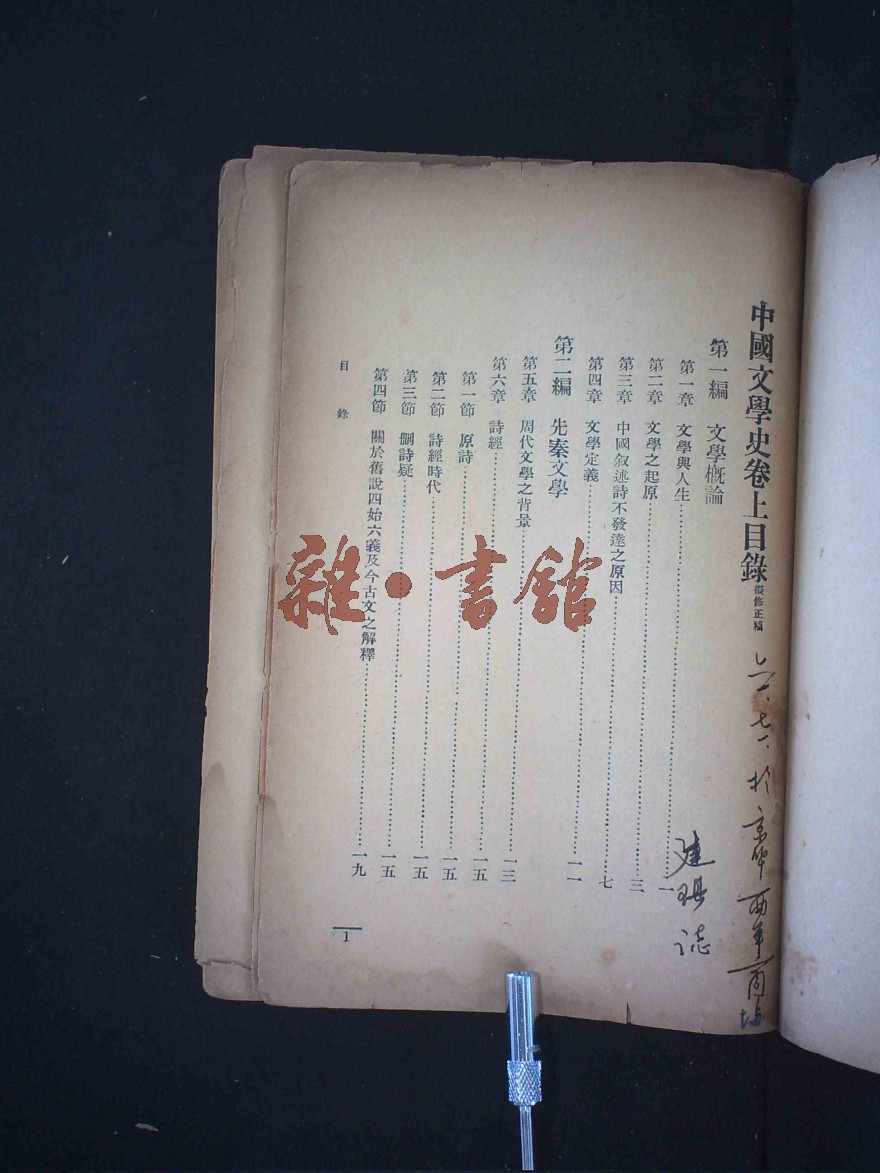 中國文學史卷上目錄 擬修正稿
第一編 文學概論
第一章 文學與人生 一
第二章 文學之起原 三
第三章 中國叙述詩不發達之原因 七
第四章 文學定義 一一
第二編 先秦文學
第五章 周代文學之背景 一三
第六章 詩經 一五
第一節 原詩 一五
第二節 詩經時代 一五
第三節 刪詩疑 一五
第四節 關於舊說四始六義及今古文之解釋 一九
目錄
1
於京华
建琪 誌
雜·書館